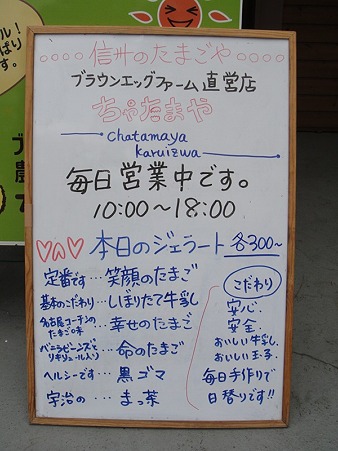 ル!
ぱり
す。
。。。。信州のたまごや。。。。
ブラウンエッグファーム直営店
ちゃたまや
chatamaya
karuizwa
毎日営業中です。
10:00〜18:00
本日のジェラート 各300~
定番です…笑顔のたまご
基本のこだわり…しぼりたて牛乳
名古屋コーチンのたまご味…幸せのたまご
バニラビーンズとリキュール入り…命のたまご
ヘルシーです…黒ゴマ
宇治の…まっ茶
こだわり
安心、
安全、
おいしい牛乳、
おいしい玉子、
毎日手作りで
日替りです!!